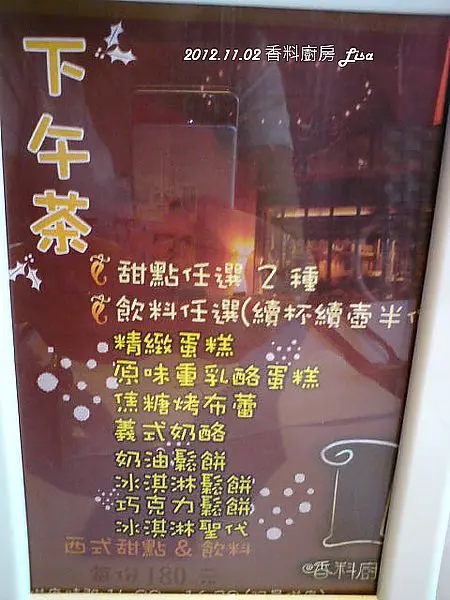 2012.11.02 香料廚房 Lisa
下午茶
甜點任選 2 種
飲料任選(續杯續壺半
精緻蛋糕
原味重乳酪蛋糕
焦糖烤布蕾
義式奶酪
奶油鬆餅
冰淇淋鬆餅
巧克力鬆餅
冰淇淋聖代
西式甜點 & 飲料
每份 180 元
@香料廚